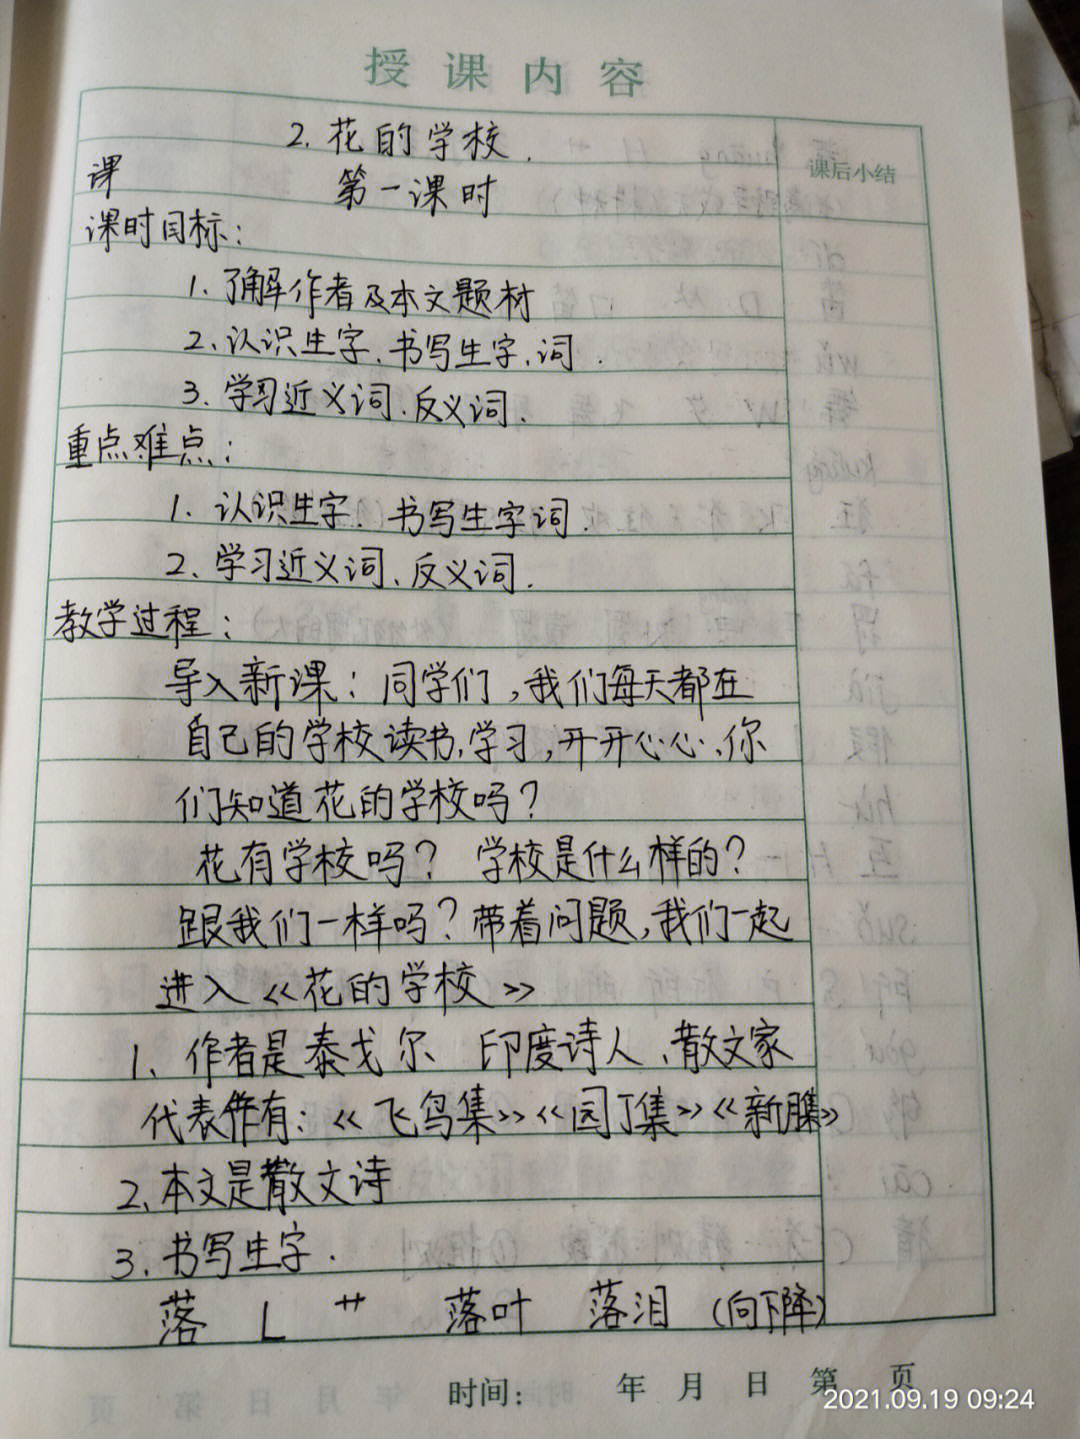 授课内容
2. 花的学校.
课后小结
课
第一课时
课时目标:
1. 了解作者及本文题材
2. 认识生字、书写生字、词.
3. 学习近义词、反义词.
重点难点:
1. 认识生字、书写生字词.
2. 学习近义词、反义词.
教学过程:
导入新课: 同学们,我们每天都在
自己的学校读书,学习,开开心心、你
们知道花的学校吗?
花有学校吗? 学校是什么样的?
跟我们一样吗?带着问题,我们一起
进入《花的学校》
1、作者是泰戈尔 印度诗人、散文家
代表作有:《飞鸟集》《园丁集》《新月集》
2、本文是散文诗
3、书写生字.
落 L 艹 落叶 落泪 (向下降)
时间: 年 月 日 第 页
2021.09.19 09:24